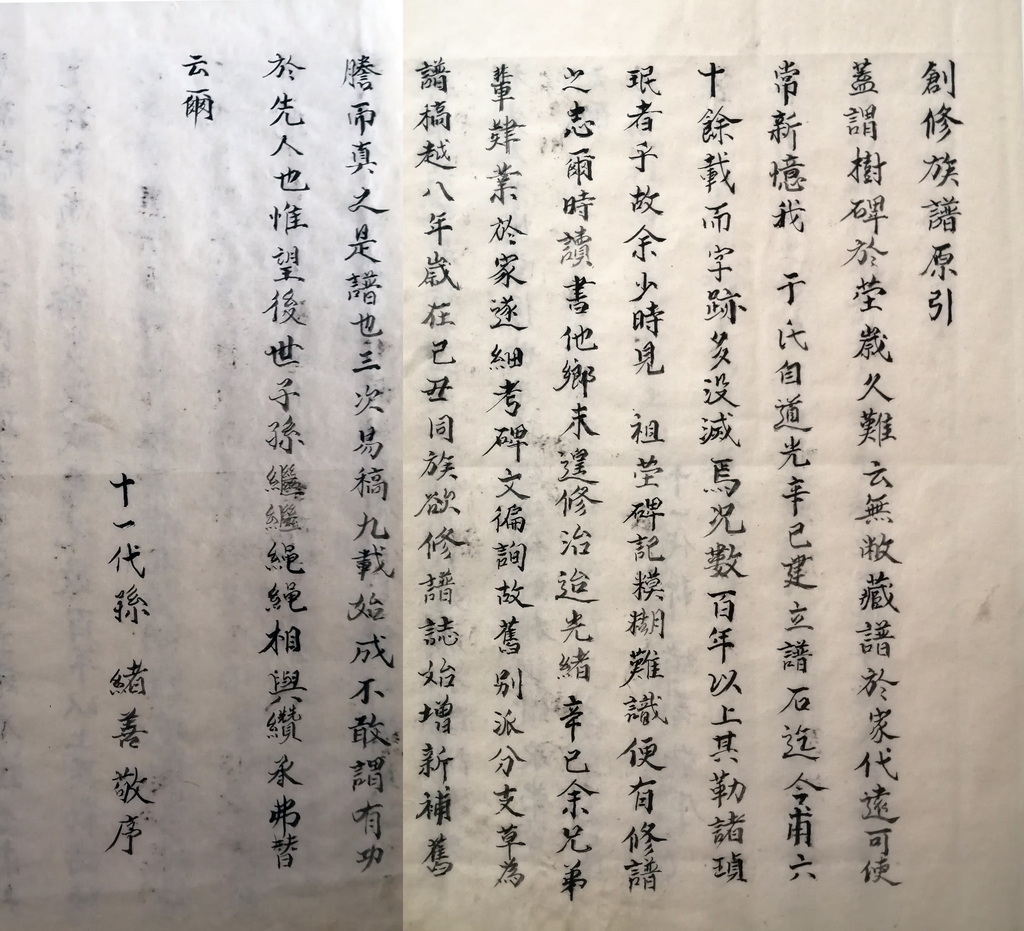 創修族譜原引
蓋謂樹碑於塋歲久難云無敝藏譜於家代遠可使
常新憶我 于氏自道光辛巳建立譜石迄今甫六
十餘載而字跡多没滅焉况數百年以上其勒諸瑱
珉者乎故余少時見 祖塋碑記糢糊難識便有修譜
之志爾時讀書他鄉未遑修治迨光緒辛巳余兄弟
輩肄業於家遂細考碑文徧詢故舊别派分支草為
譜稿越八年歲在己丑同族欲修譜誌始增新補舊
謄而真之是譜也三次易稿九載始成不敢謂有功
於先人也惟望後世子孫繼繼繩繩相與纘承弗替
云爾
十一代孫 緒善敬序